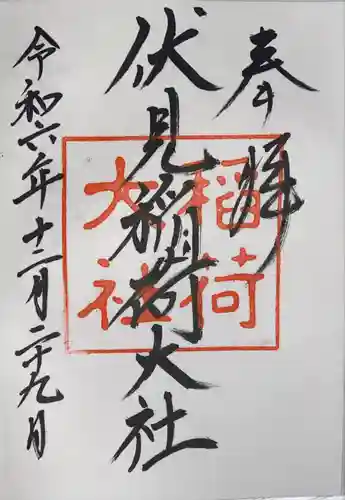 奉拝
伏見稲荷大社
令和六年十二月二十九日
稲荷
大社